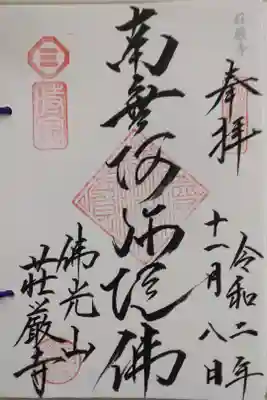 奉拝
令和二年
十一月八日
南無阿弥陀佛
佛光山
荘厳寺